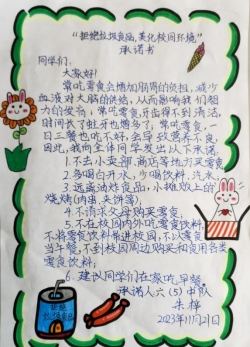 “拒绝垃圾食品,美化校园环境”
承诺书
同学们:
大家好!
常吃零食会增加肠胃的负担,减少
血液对大脑的供给,从而影响我们智
力的发育;常吃零食,牙齿得不到清洁,
时间长了蛀牙也算多了;常吃零食,一
日三餐也吃不好,会导致营养不良,
因此,我向全体同学发出以下承诺:
1.不去小卖部、商店等地方买零食
2.多喝白开水,少喝饮料、汽水.
3.远离油炸食品,小摊贩上的
烧烤(肉串、夹饼等)
4.不请求父母购买零食.
5.不在校园内外吃零食饮料,
不将零食饮料带进校园,不以零食
当午餐,不到校园周边购买和食用各类
零食饮料;
6.建议同学们在家吃早餐.
承诺人六(5)中队
朱梓
2023年11月21日
拒绝
垃圾食品